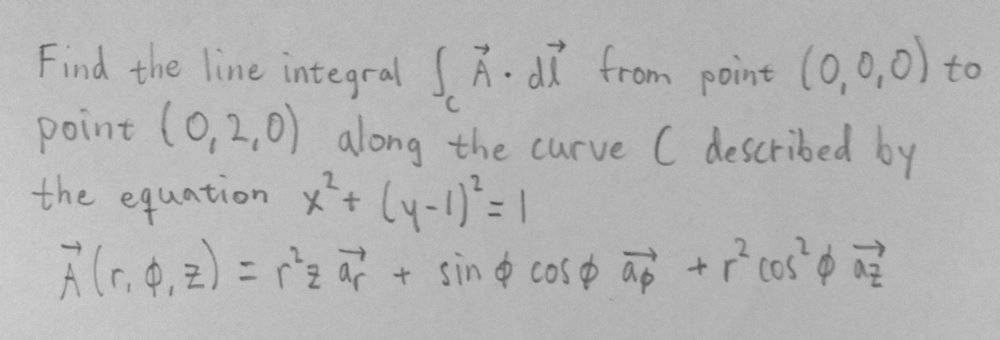 Find the line integral ∫_C A⃗ · dl⃗ from point (0,0,0) to
point (0,2,0) along the curve C described by
the equation x² + (y-1)² = 1
A⃗(r, ϕ, z) = r²z a⃗ᵣ + sin ϕ cos ϕ a⃗_ϕ + r² cos² ϕ a⃗_z